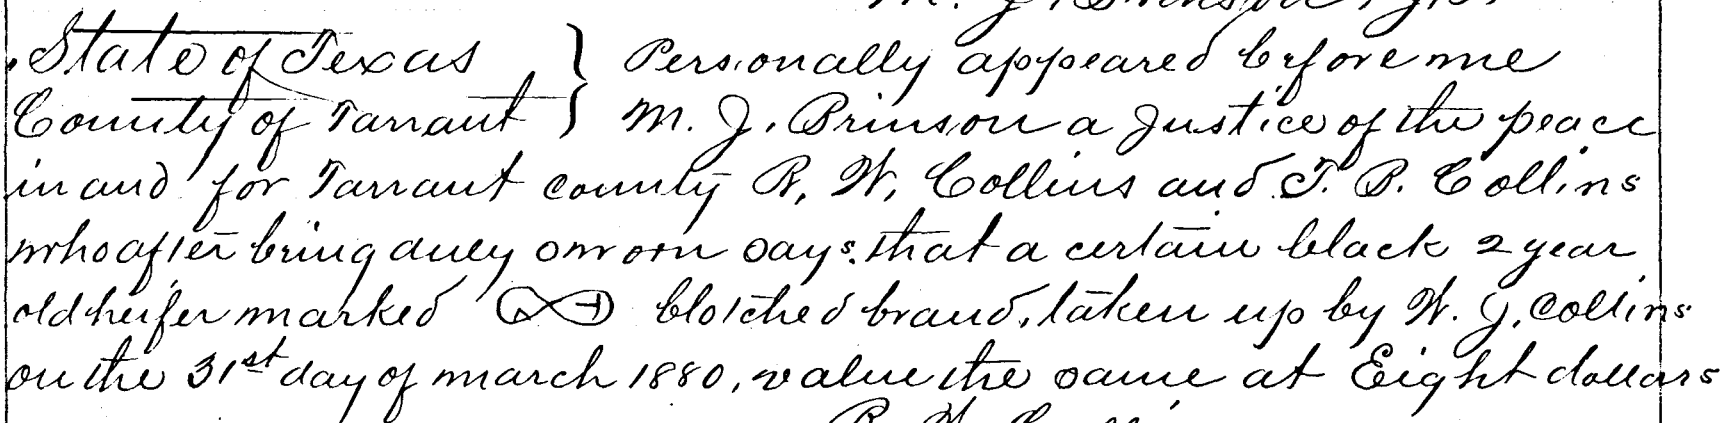 M. J. Brinson, J.P.
State of Texas } Personally appeared before me
County of Tarrant } M. J. Brinson a Justice of the peace
in and for Tarrant county R. W. Collins and T. P. Collins
who after being duly sworn says. that a certain black 2 year
old heifer marked blotched brand, taken up by W. J. Collins
on the 31st day of march 1880, value the same at Eight dollars